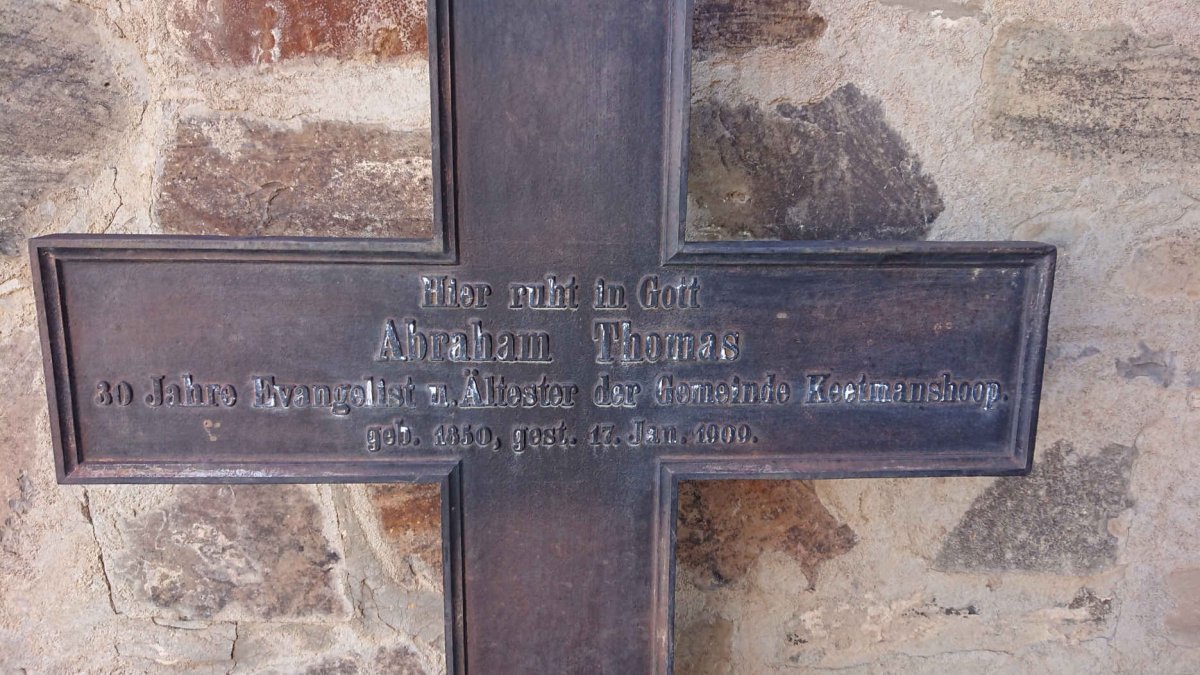 Hier ruht in Gott
Abraham Thomas
30 Jahre Evangelist u. Ältester der Gemeinde Keetmanshoop.
geb. 1850, gest. 17. Jan. 1909.